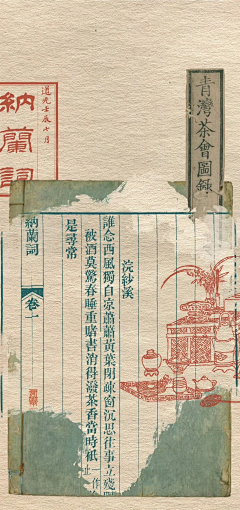 青灣茶會圖錄
道光壬辰七月
納蘭詞
浣紗溪
誰念西風獨自凉蕭蕭黃葉閉疎窗沉思往事立殘
被酒莫驚春睡重賭書消得潑茶香當時祇一作止
是尋常
納蘭詞 卷一